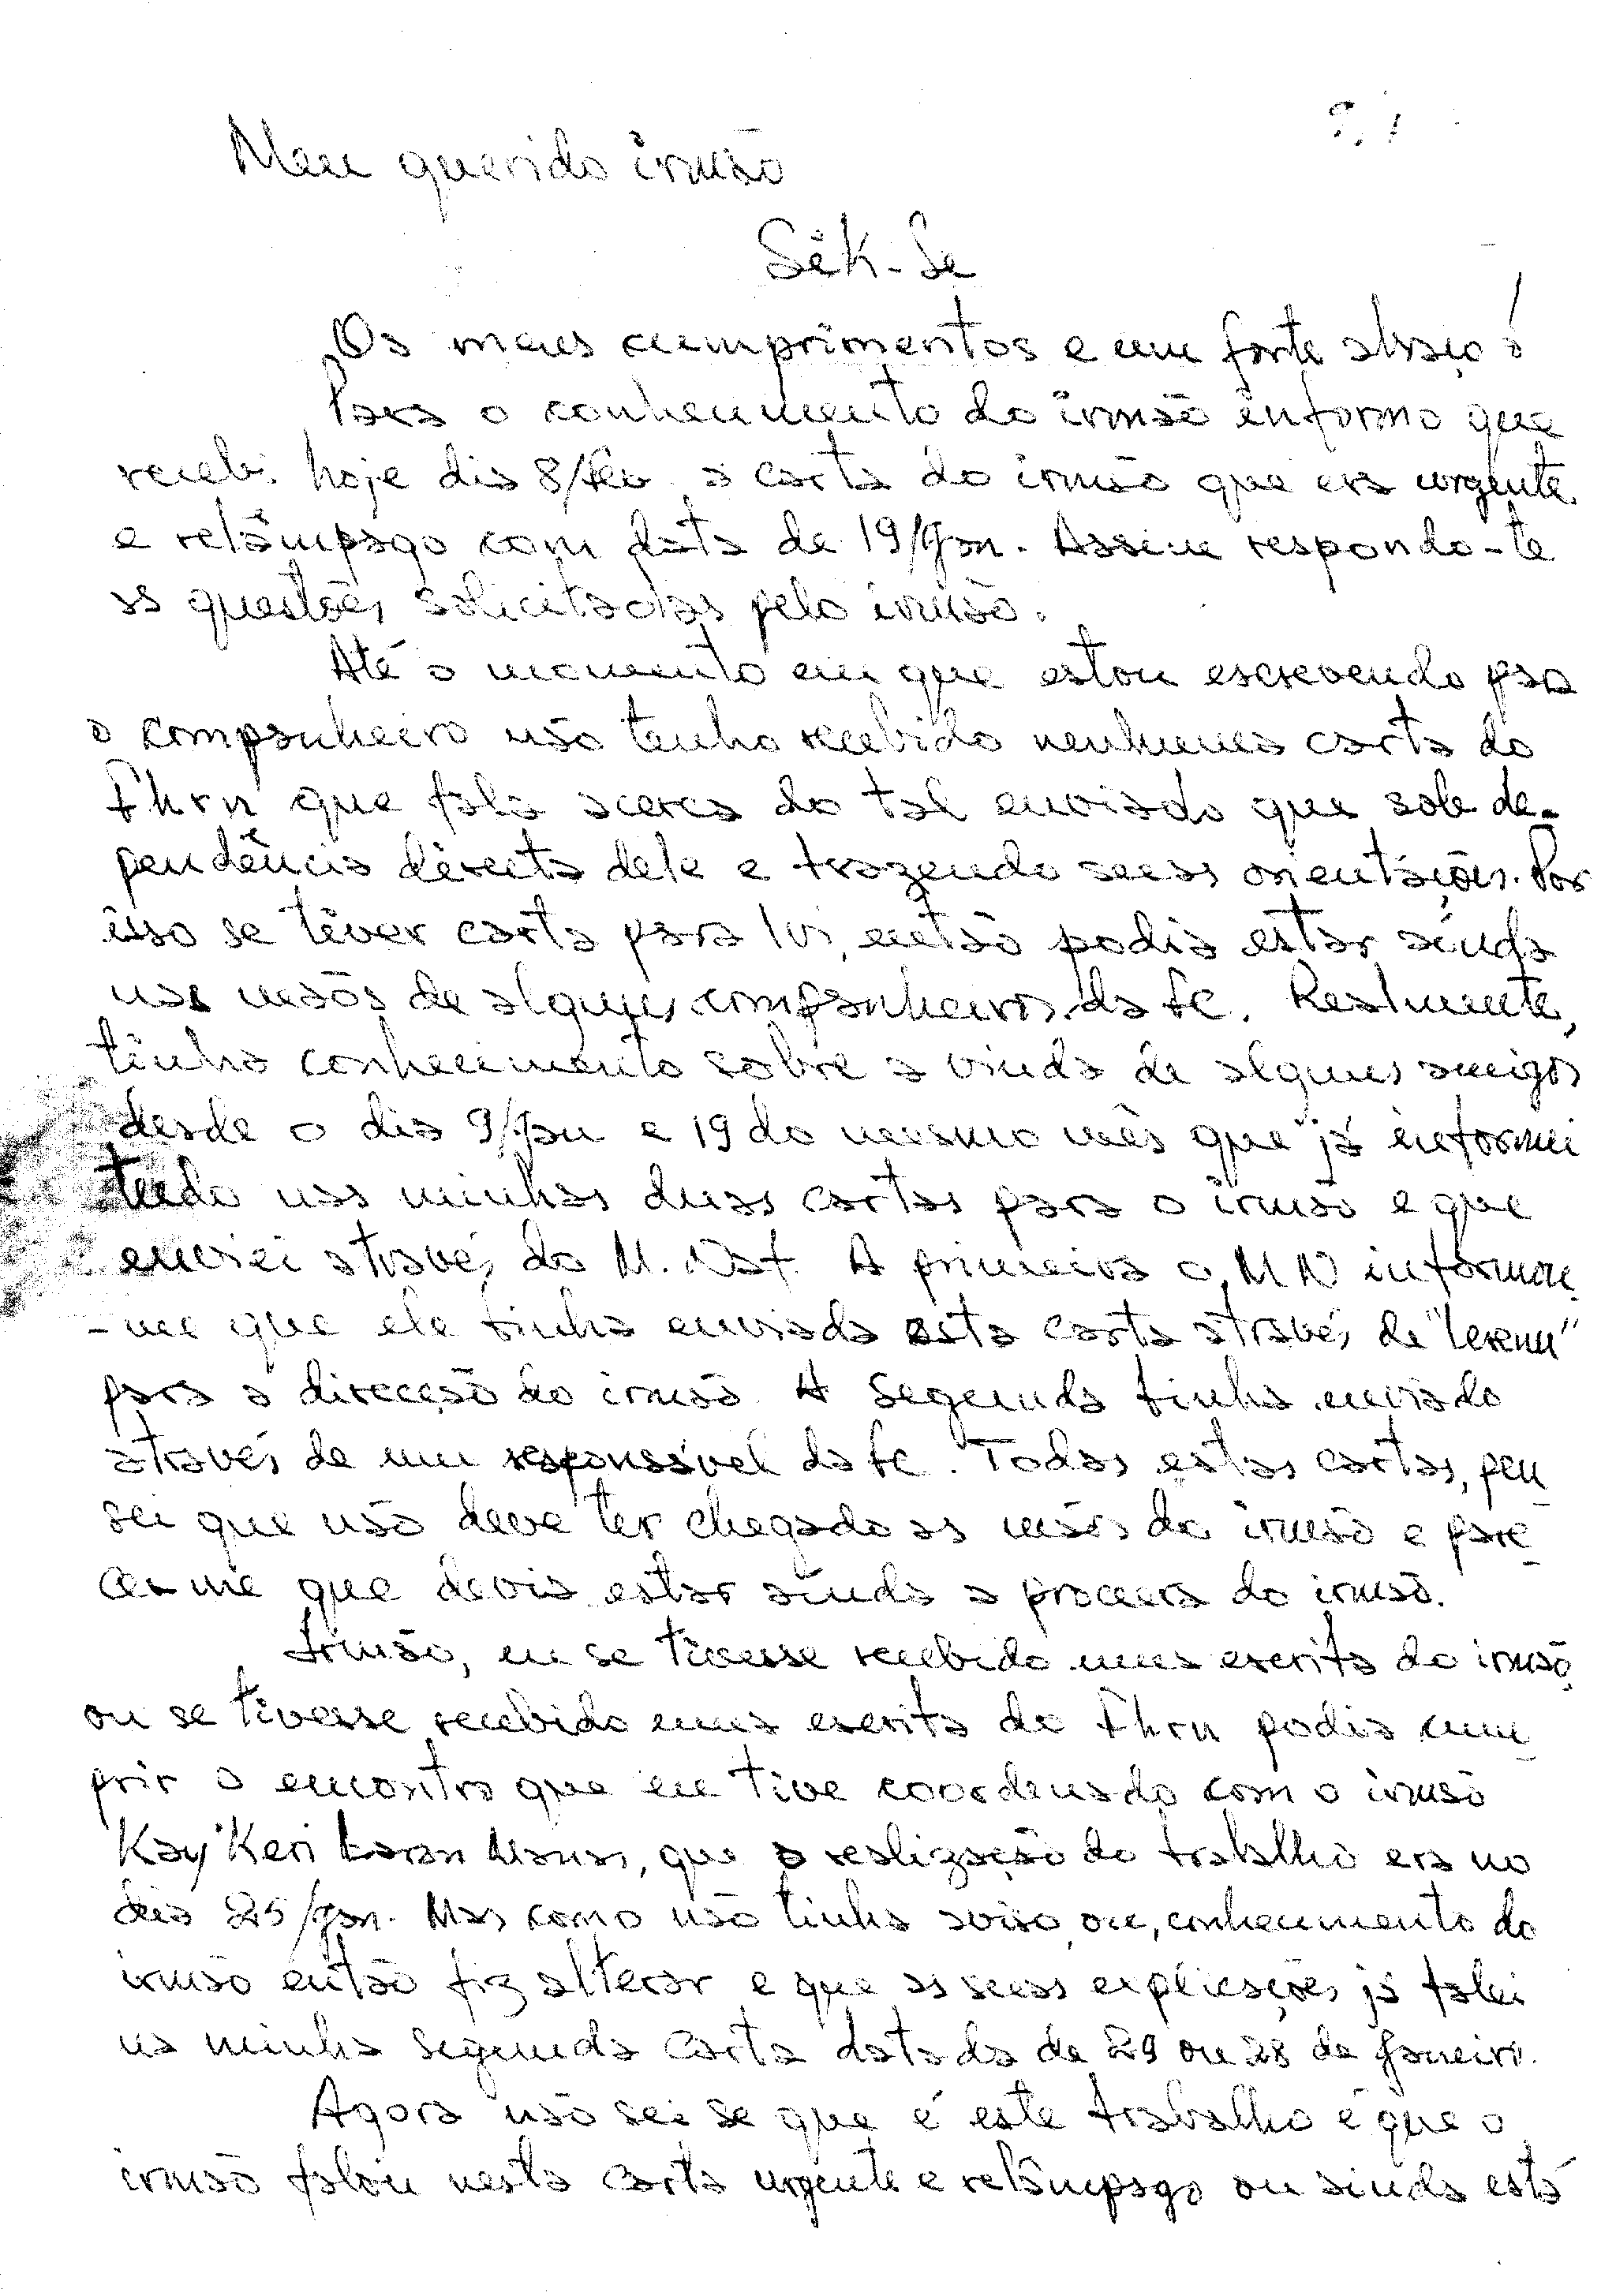 P. 1
Meu querido irmão
Sêk-Se
Os meus cumprimentos e um forte abraço!
Para o conhecimento do irmão informo que
recebi hoje dia 8/Fev a carta do irmão que era urgente
e relâmpago com data de 19/Jan. Assim respondo-te
as questões solicitadas pelo irmão.
Até o momento em que estou escrevendo para
o companheiro não tenho recebido nenhuma carta do
Fhrn que fala acerca do tal enviado que sob de-
pendência directa dele e trazendo suas orientações. Por
isso se tiver carta para lá, então podia estar ainda
nas mãos de alguns companheiros da fc. Realmente,
tinha conhecimento sobre a vinda de alguns amigos
desde o dia 9/Jan e 19 do mesmo mês que já informei
tudo nas minhas duas cartas para o irmão e que
enviei através do M. Naf. A primeira o MN informou
-me que ele tinha enviado esta carta através de "Lerenu"
para a direcção do irmão. A segunda tinha enviado
através de um responsável da fc. Todas estas cartas, pen
sei que não deve ter chegado as mãos do irmão e pare
ce-me que devia estar ainda a procura do irmão.
Irmão, eu se tivesse recebido uma escrita do irmão
ou se tivesse recebido uma escrita do Fhrn podia cum
prir o encontro que eu tive coordenado com o irmão
Kay Keri Laran Manas, que a realização do trabalho era no
dia 25/Jan. Mas como não tinha aviso ou, conhecimento do
irmão então fiz alterar e que as suas explicações já falei
na minha segunda carta datada de 29 ou 28 de Janeiro.
Agora não sei se que é este trabalho é que o
irmão falou nesta carta urgente e relâmpago ou ainda está